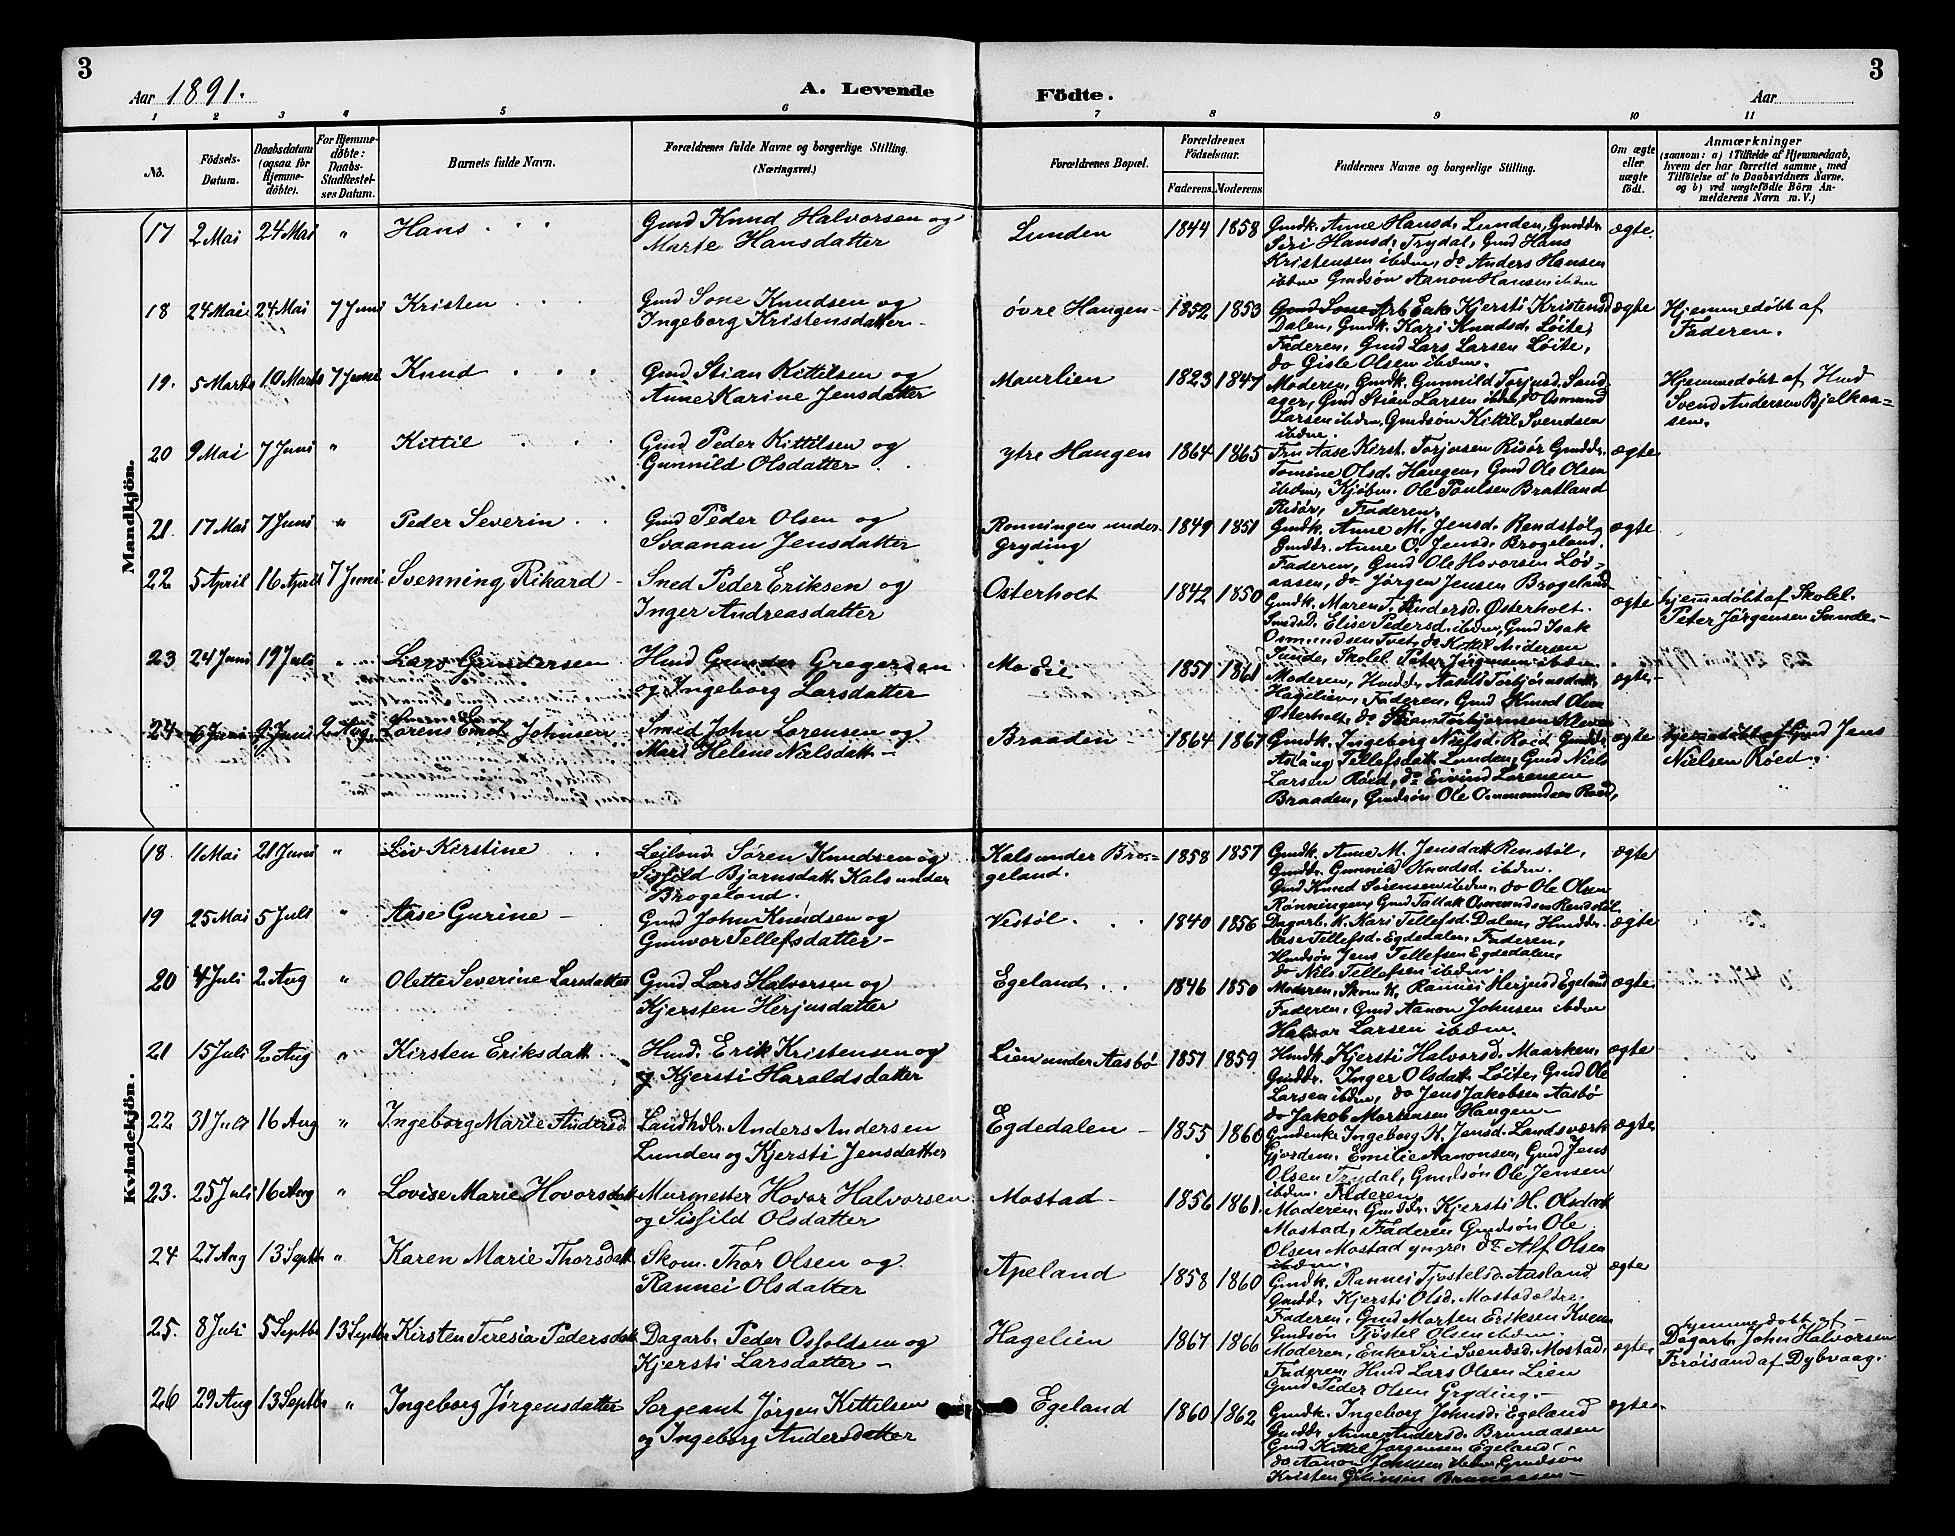 3
3
Aar 1891.
A. Levende
Födte.
Aar
1 2 3 4 5 6 7 8 9 10 11
No.
Födsels-
Datum.
Daabsdatum
(ogsaa for
Hjemme-
döbte).
For Hjemme-
döbte:
Daabs-
Stadfæstel-
ses Datum.
Barnets fulde Navn.
Forældrenes fulde Navne og borgerlige Stilling.
(Næringsvei.)
Forældrenes Bopæl.
Forældrenes
Födselsaar.
Faderens. Moderens.
Faddernes Navne og borgerlige Stilling.
Om ægte
eller
uægte
födt.
Anmærkninger
(saasom: a) i Tilfælde af Hjemmedaab,
hvem der har forrettet samme, med
Tilföielse af to Daabsvidners Navne,
og b) ved uægtefödte Börn An-
melderens Navn m. V.)
Mandkjön.
17 2 Mai 24 Mai " Hans
Gmd Knud Halvorsen og
Marie Hansdatter
Lunden 1844 1858
Gmdk. Anne Hansd. Lunden, Gmddr.
Siri Hansd. Trydal, Gmd Hans
Kristensen ibdm, do Anders Hansen
ibdm Gmdsøn Aanon Hansen ibdm
ægte.
18 24 Mai 24 Mai 7 Juni Kristen
Gmd Sone Knudsen og
Ingeborg Kristensdatter
øvre Haugen 1852 1853
Enke Kjersti Kristensd
Dalen, Gmdk. Kari Knudsd. Løite,
Faderen, Gmd Lars Larsen Løite,
do Gisle Olsen ibdm.
ægte
Hjemmedøbt af
Faderen.
19. 5 Marts 10 Marts 7 Juni Knud
Gmd Stian Kittilsen og
Anne Karine Jensdatter
Maurlien 1823 1847
Moderen, Gmdk. Gunnild Torjusd. Sand-
ager, Gmd Stian Larsen ibdm, do Osmund
Larsen ibdm, Gmdsøn Kittil Svendsen
ibdm.
Hjemmedøbt af Hmd
Svend Andersen Bjelkaa-
sen.
20 9 Mai 7 Juni " Kittil
Gmd Peder Kittilsen og
Gunnild Olsdatter
ytre Haugen 1864 1865
Fru Aase Kirst. Torjusen Risør Gmddr.
Tomine Olsd. Haugen, Gmd Ole Olsen
ibdm, Kjøbm. Ole Poulsen Bratland
Risør, Faderen,
ægte
21. 17 Mai 7 Juni " Peder Severin
Gmd Peder Olsen og
Svaanau Jensdatter
Ronningen under
Gryding
1849 1851
Gmdk. Anne M. Jensd. Rendstøl,
Gmddr. Anne O. Jensd. Brogeland.
Faderen, Gmd Ole Hovorsen Løv-
aasen, do Jørgen Jensen Brogeland
ægte
22 5 April 16 April 7 Juni Svenning Rikard
Smed Peder Eriksen og
Inger Andreasdatter
Osterholt 1842 1850
Gmdk. Maren T. Andersd. Østerholt.
Smdsd. Elise Pedersd. ibdm, Gmd Isak
Osmundsen Tvet, do Kittil Andersen
Sunde, Skolel. Peter Jørgensen ibdm.
ægte
hjemmedøbt af Skolel.
Peter Jörgensen Sunde
23 24 Juni 19 Juli " Lars Gundersen
Hmd Gunder Gregersen
og Ingeborg Larsdatter
Mo Eie 1851 1861
Moderen, Hmddr. Aasild Torbjørnsdatt.
Hagelien, Faderen, Gmd Knud Olsen
Østerholt, do Stian Torbjørnsen Kleven
ægte
24 6 Juni 9 Juni 2 Aug Lorens Emil Johnsen
Smed John Lorensen og
Mari Helene Nilsdatt
Braaden 1864 1867
Gmdk. Ingeborg Nielsd. Roed Gmddr.
Aslaug Tellefsdatt. Lunden, Gmd Niels
Larsen Röed, do Eivind Larensen
Braaden, Gmdsøn Ole Osmundsen Roed,
ægte
hjemmedøbt af Gmd Jens
Nielsen Röed.
Kvindekjön.
18. 11 Mai 21 Juni " Liv Kirstine
Leilænd. Søren Knudsen og
Sisfild Bjarnsdatt. Kals under
Brogeland.
Kals under Bro-
geland.
1858 1857
Gmdk. Anne M. Jensdatt. Renstøl,
Gmddr. Gunnild Knudsd. ibdm.
Gmd Knud Sørensen ibdm, do Ole Olsen
Rønningen, Gmd Tallak Osmundsen Rendstøl,
ægte
19 25 Mai 5 Juli " Aase Gurine
Gmd John Knudsen og
Gunvor Tellefsdatter
Vestøl. 1840 1856
Dagarb. K. Kari Tellefsd. Dalen, Hmddr.
Aase Tellefsd. Egdedalen, Faderen,
Hmdsøn Jens Tellefsen Egdedalen,
do Nils Tellefsen ibdm.
ægte
20 4 Juli 2 Aug " Olette Severine Larsdatter
Gmd Lars Halvorsen og
Kjersten Herjusdatter
Egeland 1846 1850
Moderen, Skom. K. Rannei Herjusd Egeland
Faderen, Gmd Aanon Johnsen ibdm
Halvor Larsen ibdm.
ægte.
21 15 Juli 2 Aug " Kirsten Eriksdatt.
Hmd. Erik Kristensen og
og Kjersti Haraldsdatter
Lien under Aasbö 1851 1859
Hmdk. Kjersti Halvorsd. Maarken,
Gmddr. Inger Olsdatt. Löite, Gmd Ole
Larsen ibdm, do Jens Jakobsen Aasbø
do Jakob Mortensen Haugen
ægte
22 31 Juli 16 Aug " Ingeborg Marie Andersd.
Landhdlr. Anders Andersen
Lunden og Kjersti Jensdatter
Egdedalen 1855 1860
Gmdenke Ingeborg H. Jensd. Landsværk
Gjordem. Emilie Aanonsen, Gmd Jens
Olsen Trydal, Gmdsøn Ole Jensen
ibdm. Faderen.
ægte
23. 25 Juli 16 Aug " Lovise Marie Hovorsdatt.
Murmester Hovor Halvorsen
og Sisfild Olsdatter
Mostad 1856 1861.
Moderen. Gmddr. Kjersti H. Olsdatt
Mostad, Faderen Gmdsøn Ole
Olsen Mostad yngre, do Alf Olsen
ibdm.
24 27 Aug 13 Septbr " Karen Marie Thorsdatt.
Skom. Thor Olsen og
Rannei Olsdatter
Apeland 1858 1860
Gmdk. Rannei Tjostelsd. Aasland
Gmddr. Kjersti Olsd. Mostad ældre
Faderen, Gmd Morten Eriksen Kveim
Gmdsøn Tjøstel Olsen ibdm.
ægte
25. 8 Juli 5 Septbr 13 Septbr Kirsten Teresia Pedersdatt.
Dagarb. Peder Osfoldsen og
Kjersti Larsdatter
Hagelien 1867 1866
Moderen, Enke Siri Svendsd. Mostad.
Faderen, Hmd Lars Olsen Lien
Gmd Peder Olsen Gryding.
ægte.
hjemmedøbt af
Dagarb. John Halvorsen
Forøisand af Dybvaag.
26 29 Aug 13 Septbr " Ingeborg Jørgensdatter
Sergeant Jørgen Kittelsen
og Ingeborg Andersdatter
Egeland 1860 1862
Gmdk. Ingeborg Johnsd. Egeland
Gmddr. Anne Andersd. Brunaasen
Gmd Kittel Jørgensen Egeland
do Aanon Johnsen ibdm, Gmdsøn
Kristen Brunaasen
ægte